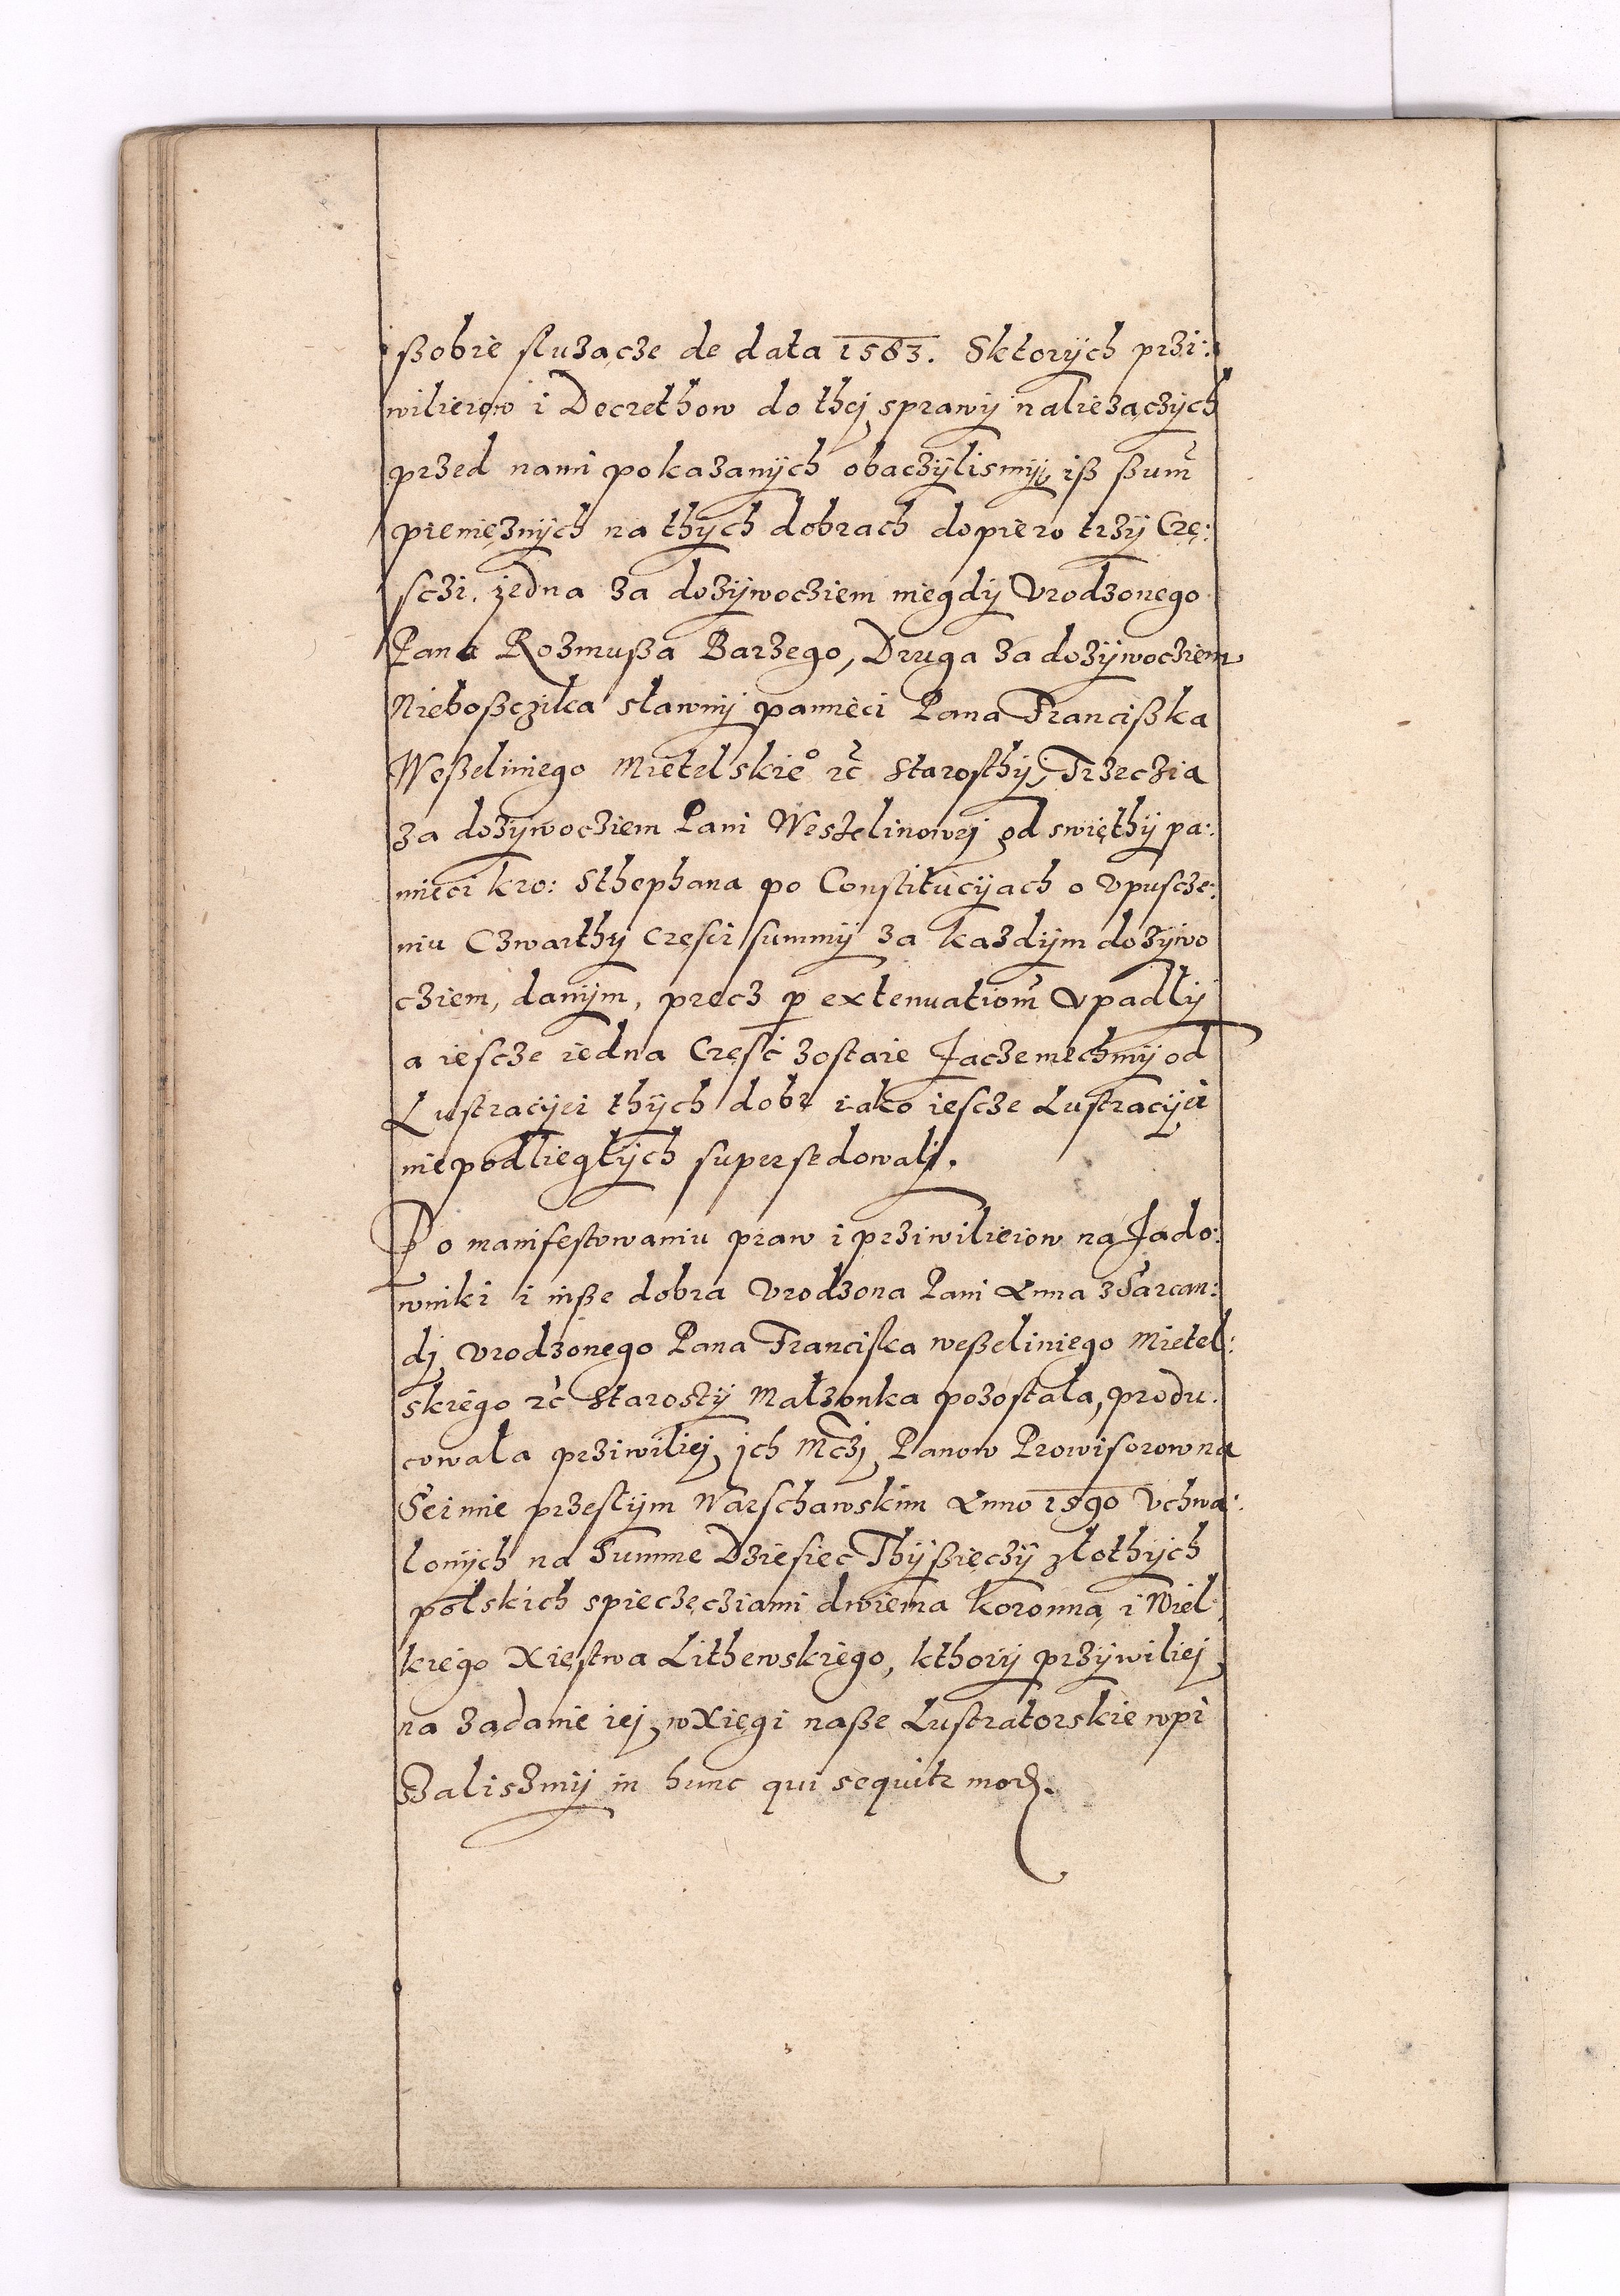 ßobie służacze de data 1583. Sktorÿch przi:
wilieiow i Decrethow do thej sprawÿ naliezączÿch
przed nami pokazanÿch obaczÿlismÿ, iß ßum̃
pieniężnÿch na thÿch dobrach dopiero trzÿ Czę:
sczi, jedna za dozÿwocziem niegdÿ Vrodzonego
Pana Rozmußa Barzego, Druga za dozÿwocziem
Nieboßczika sławnÿ pamieci Pana Francißka
Weßeliniego Mietelskie° rc̃ Starosthÿ, Trzeczia
za dozÿwocziem Pani Weszelinowej od swięthÿ pa:
mieci kro: Sthephana po Constitucÿach o Vpuscze:
niu Czwarthÿ części summÿ za kazdÿm dozÿwo
cziem, danÿm, precz p extenuationẽ Vpadłÿ
a iescze iedna Częsć zostaie Jaczemechmÿ od
Lustracÿei thÿch dobr iako iescze Lustracÿei
niepodliegłÿch supersedowalj.
Po manifestowaniu praw i przÿwilieiow na Jado:
wniki i inße dobra Vrodzona Pani Anna z Sarcan:
dj Vrodzonego Pana Franciska weßeliniego Mietel:
skiego rc̃ Starostÿ Małzonka pozostała, produ.
cowała przÿwiliej ich Mc̃zj Panow Prowisorow na
Seimie przesłÿm Warschawskim Anno 1590 Vchwa:
lonÿch na Summe Dziesiec Thÿßięczÿ złothÿch
polskich spieczęcziami dwiema koronną i Wiel
kiego Xięstwa Lithewskiego, kthorÿ przÿwiliej
na ządanie iej w Xięgi naße Lustratorskie wpi
Szaliszmÿ in hunc qui sequitr mod.